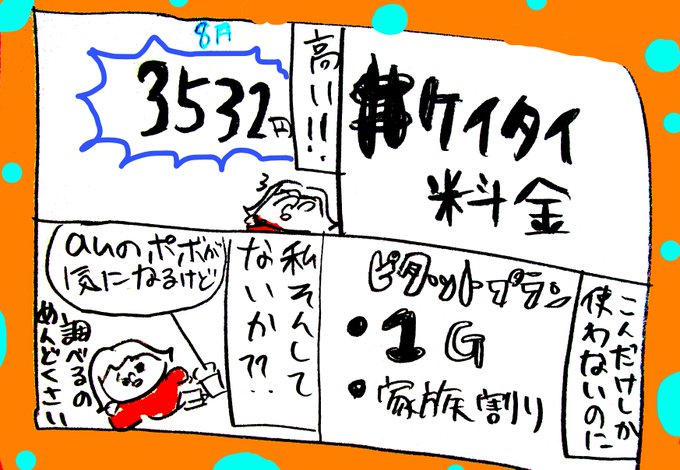 ケイタイ
料金
高い!!
8月
3532円
こんだけしか
使わないのに
ピタットプラン
・1G
・家族割り
私そんして
ないか??
auのポボが
気になるけど
調べるの
めんどくさい